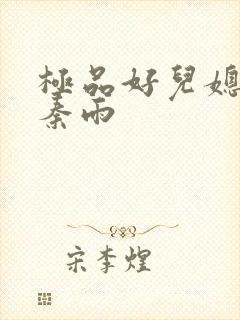 極品好兒媳
秦雨
宋李煌